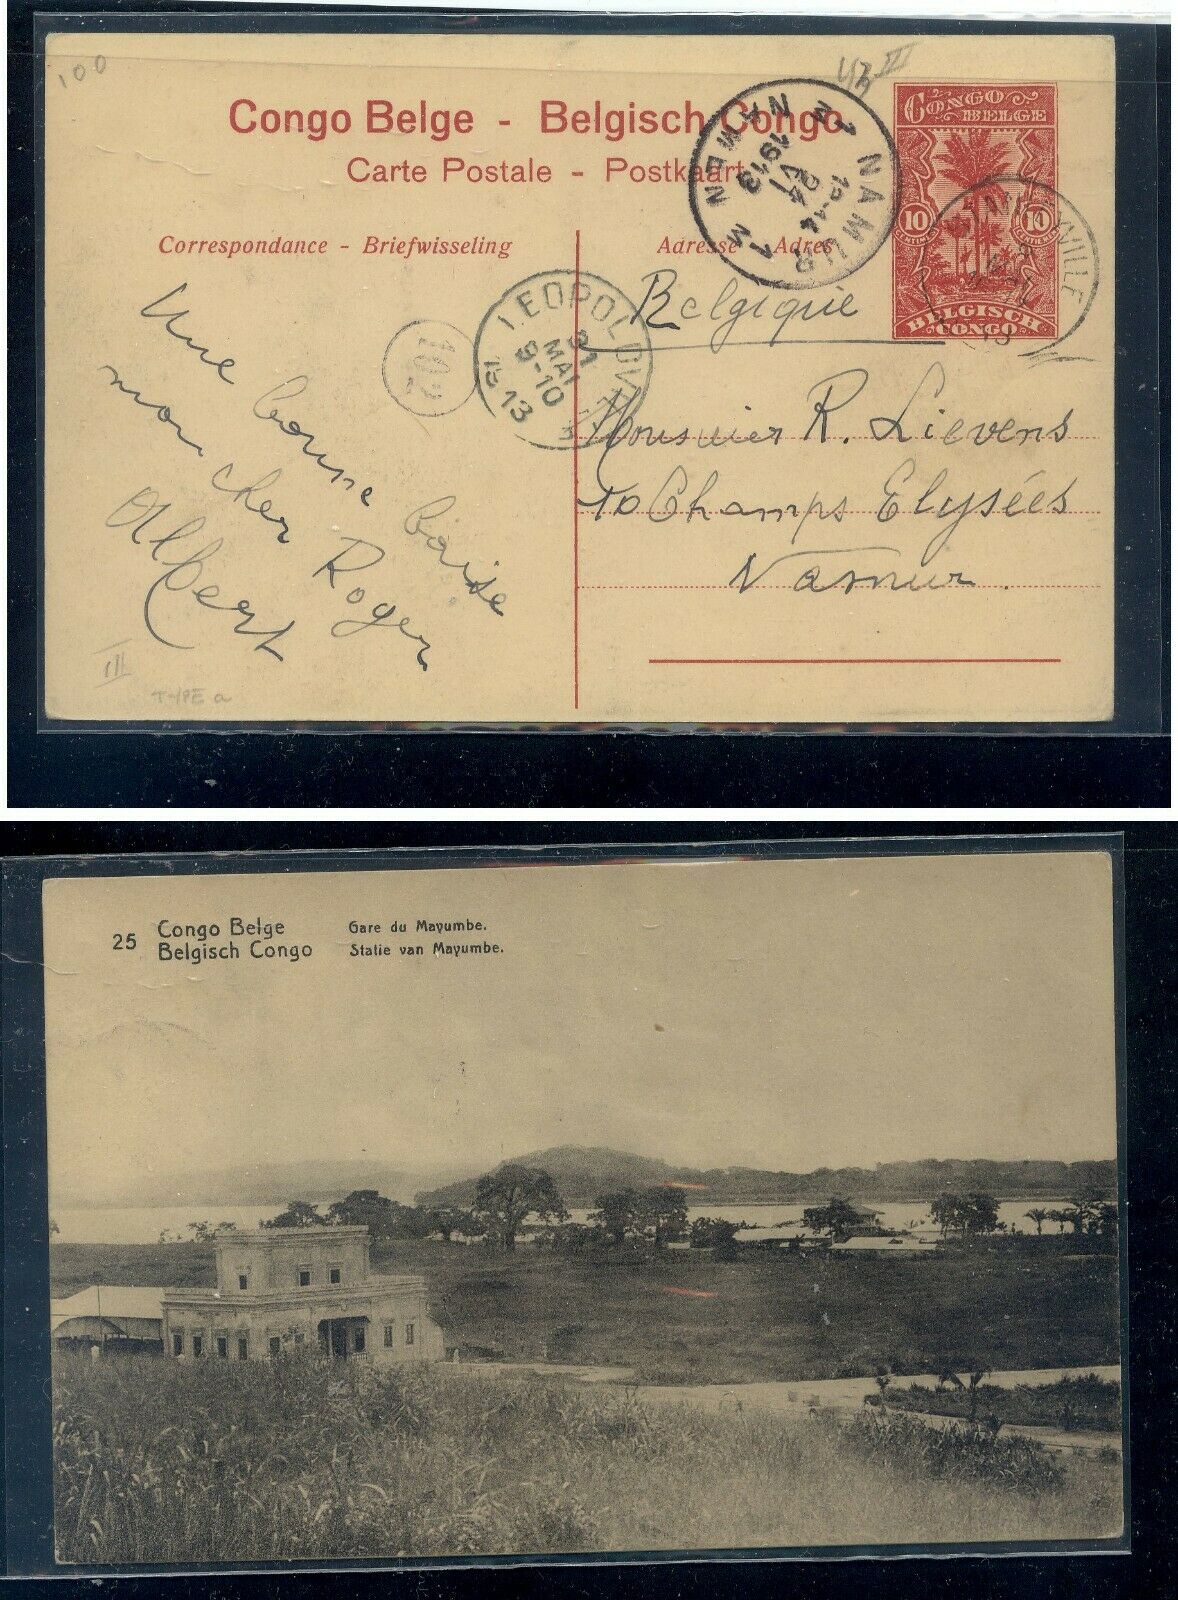 100
Congo Belge - Belgisch Congo
Carte Postale - Postkaart
Correspondance - Briefwisseling
Adresse - Adres
CONGO
BELGE
10 10
BELGISCH
CONGO
NAMUR 1
12-14
24
VI
1913
NAMEN 1
LEOPOLDVILLE
31
MAI
9-10
1913
102
Belgique
Monsuier R. Lievens
10 Champs Elysées
Namur.
Une bonne baise
mon cher Roger
Albert
III
TYPE a
25 Congo Belge Gare du Mayumbe.
Belgisch Congo Statie van Mayumbe.